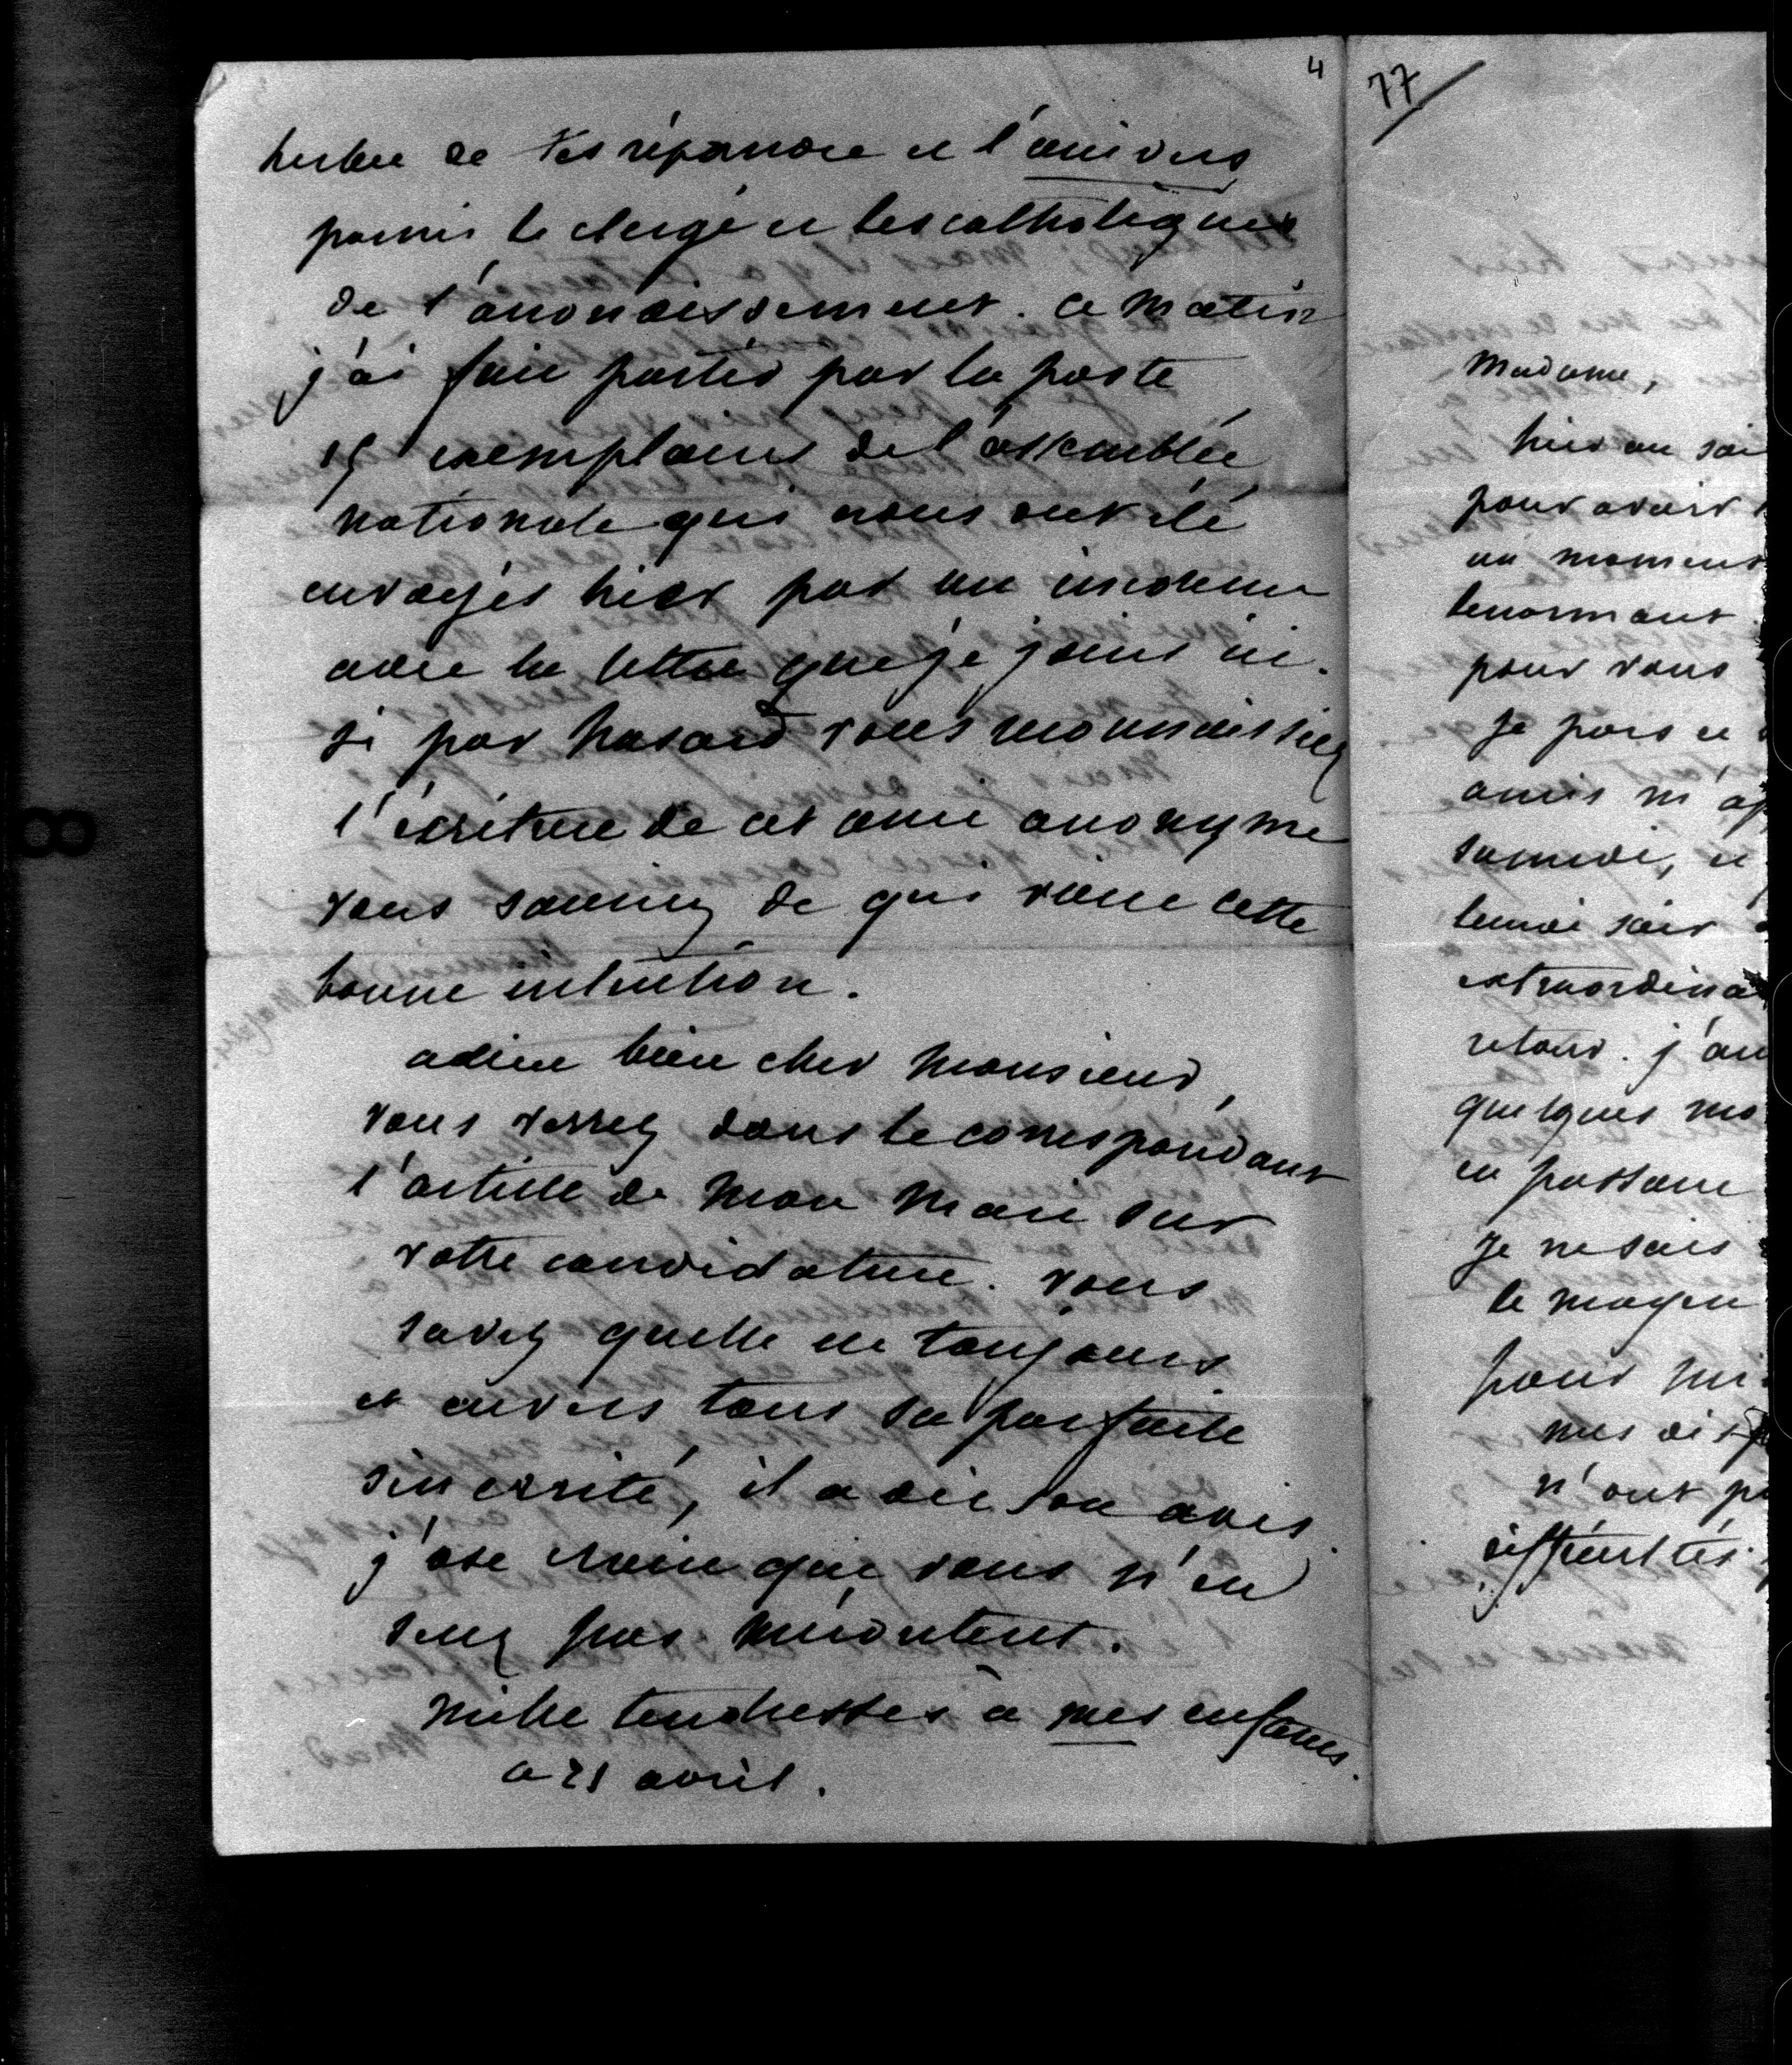 4
de les répandre et l'univers
parmi le clergé et les catholiques
de l'arrondissement. ce matin
j'ai fait partir par la poste
15 exemplaires de l'assemblée
nationale qui nous ont été
envoyés hier par un inconnu
avec la lettre que je joins ici.
si par hasard vous reconnaissiez
l'écriture de cet ami anonyme
vous sauriez de qui vient cette
bonne intention.
adieu bien cher Monsieur,
vous verrez dans le correspondant
l'article de mon mari sur
votre candidature. vous
savez quelle est toujours
et envers tous sa parfaite
sincérité, il a dit son avis.
j'ose croire que vous n'en
serez pas mécontent.
mille tendresses à mes enfants.
ce 21 avril.
77
Madame,
hier au soi
pour avoir
un moment
lenormant
pour vous
je pars ce
amis m'ap
samedi, et
lundi soir
extraordina
retour. j'au
quelques mo
en passant
je ne sais
le moyen
pour
mes disp
n'ont p
difficultés